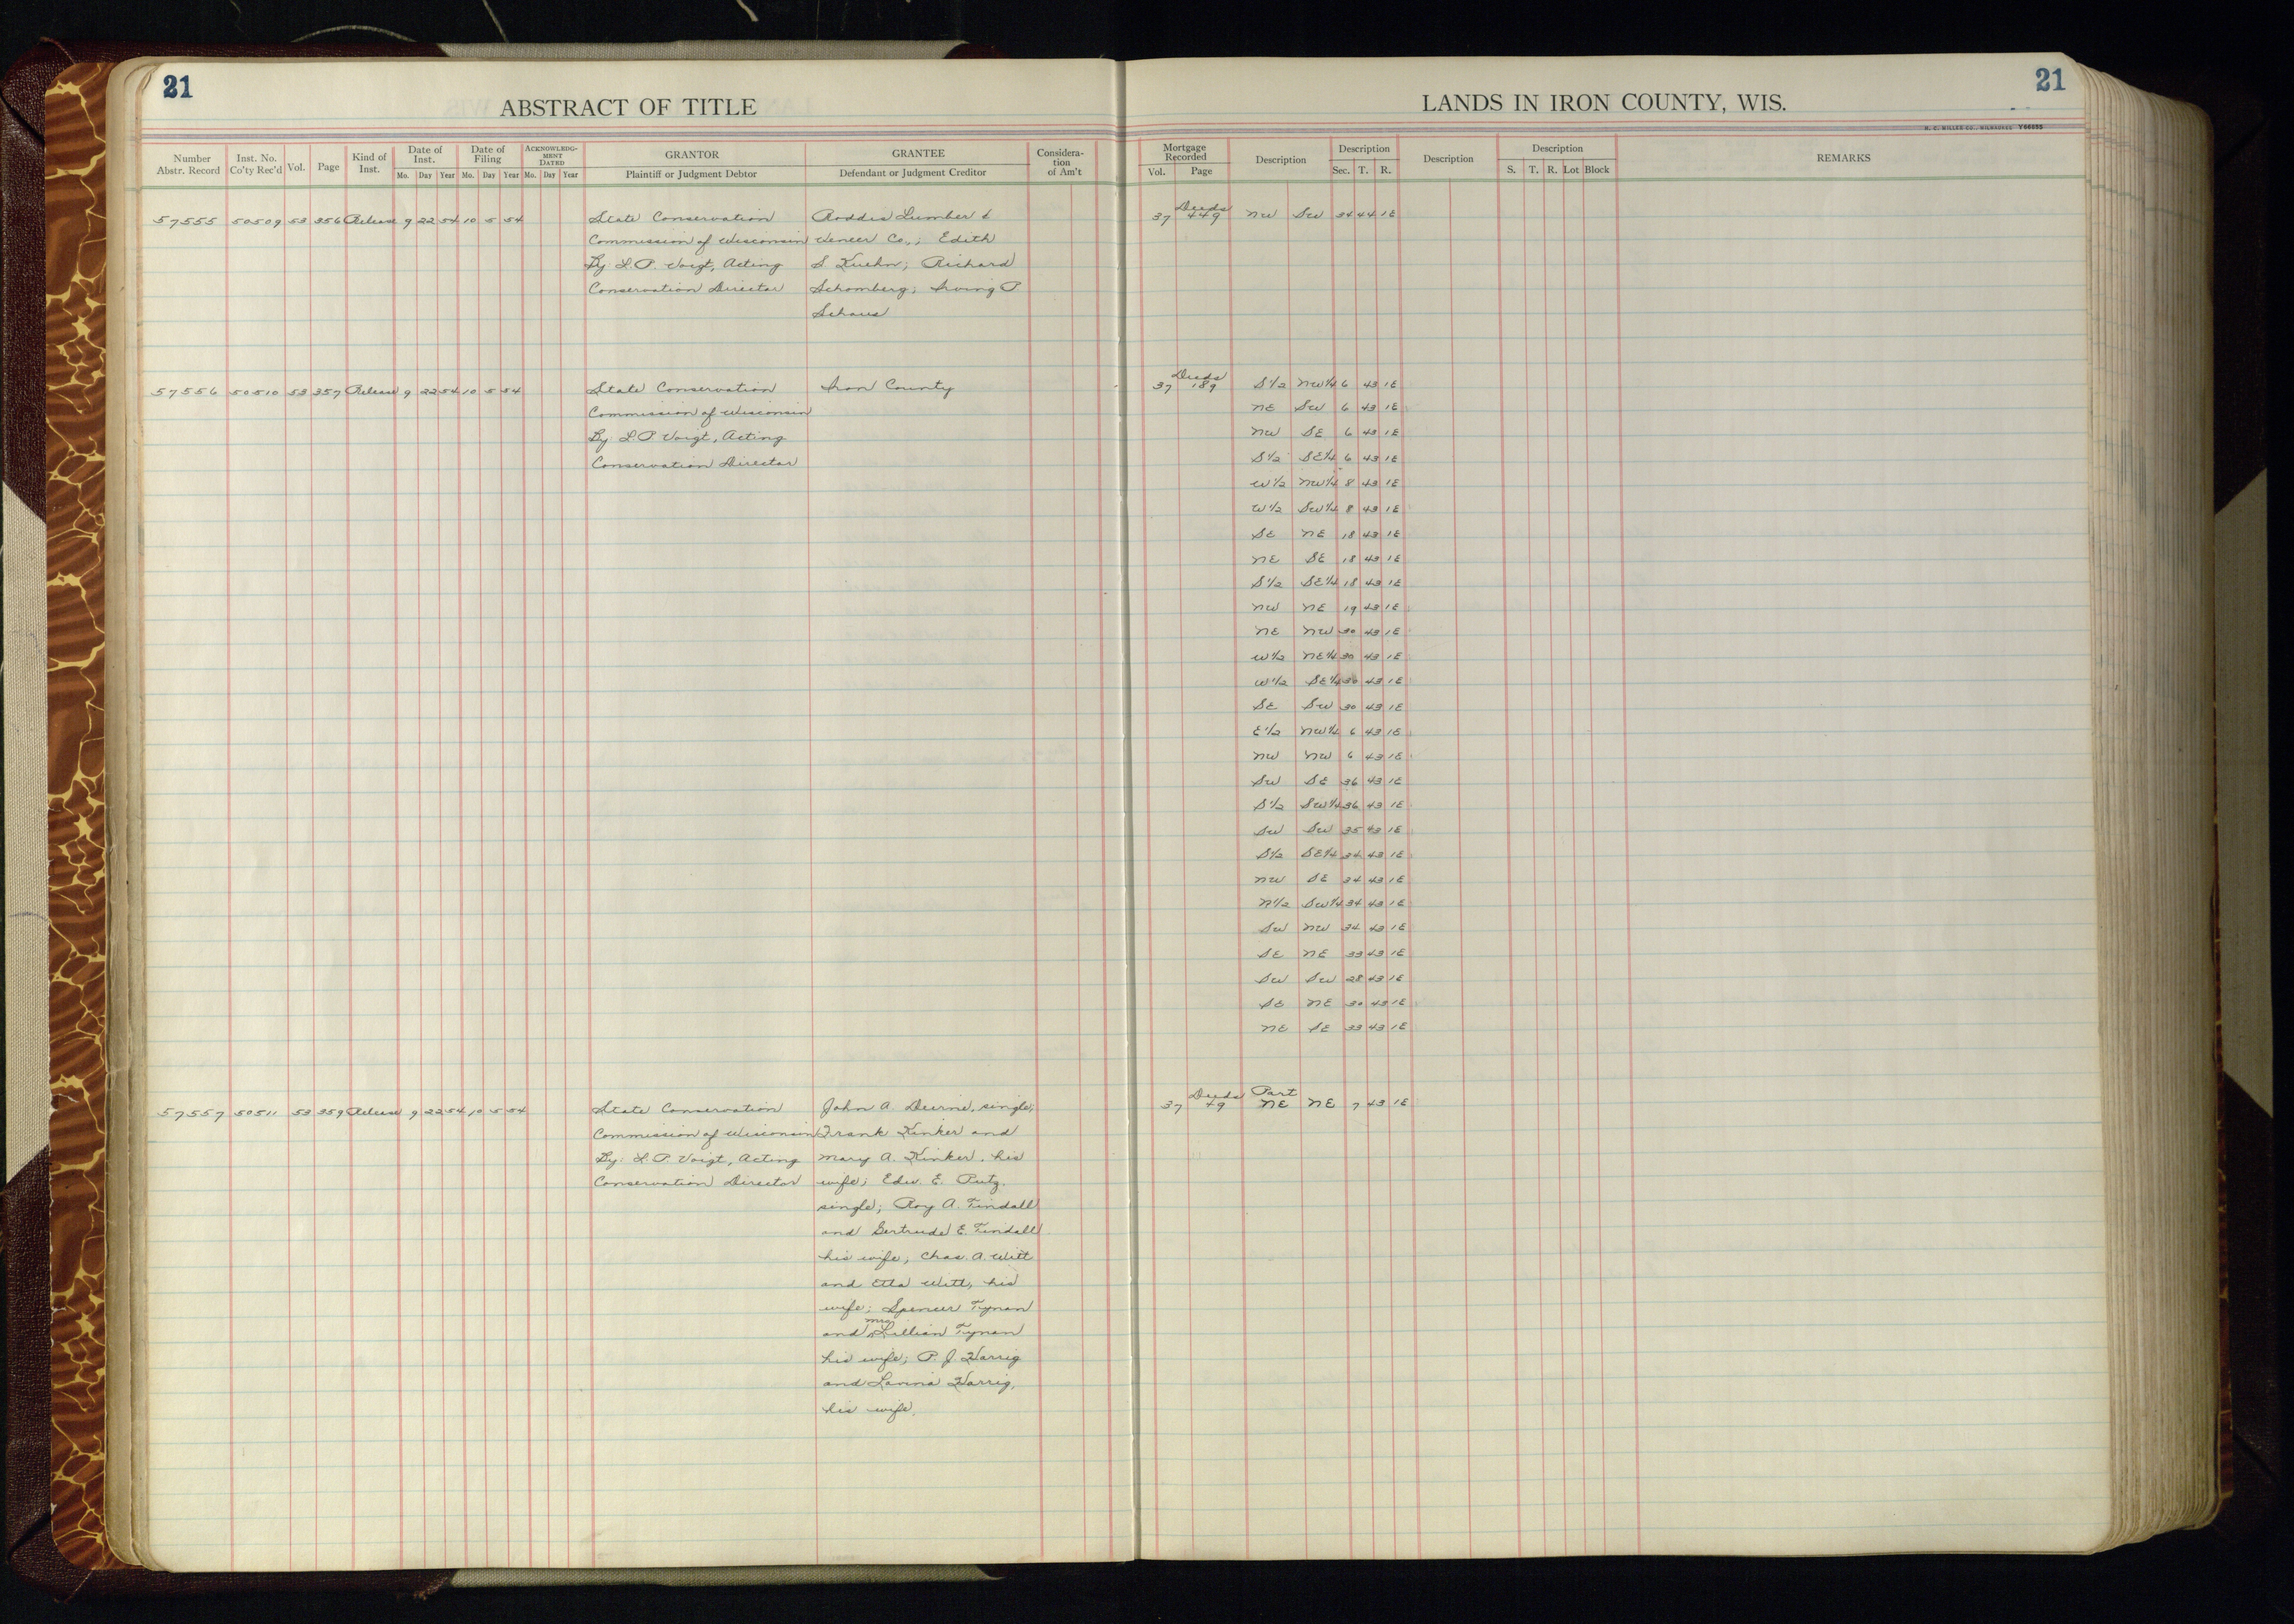 21
ABSTRACT OF TITLE
LANDS IN IRON COUNTY, WIS.
21
H. C. MILLER CO., MILWAUKEE Y66855
Number Abstr. Record | Inst. No. Co'ty Rec'd | Vol. | Page | Kind of Inst. | Date of Inst. Mo. Day Year | Date of Filing Mo. Day Year | ACKNOWLEDGMENT DATED Mo. Day Year | GRANTOR Plaintiff or Judgment Debtor | GRANTEE Defendant or Judgment Creditor | Consideration of Am't | Mortgage Recorded Vol. Page | Description | Description Sec. T. R. | Description | Description S. T. R. Lot Block | REMARKS
57555 50509 53 356 Release 9 22 54 10 5 54 State Conservation Roddis Lumber & 37 Deeds 449 NW SW 34 44 1E
Commission of Wisconsin Veneer Co.; Edith
By: L.P. Voigt, Acting S Kuehn; Richard
Conservation Director Schomberg; Irving P
Schaus
57556 50510 53 357 Release 9 22 54 10 5 54 State Conservation Iron County 37 Deeds 189 S1/2 NW1/4 6 43 1E
Commission of Wisconsin NE SW 6 43 1E
By: L.P. Voigt, Acting NW SE 6 43 1E
Conservation Director S1/2 SE1/4 6 43 1E
W1/2 NW1/4 8 43 1E
W1/2 SW1/4 8 43 1E
SE NE 18 43 1E
NE SE 18 43 1E
S1/2 SE1/4 18 43 1E
NW NE 19 43 1E
NE NW 30 43 1E
W1/2 NE1/4 30 43 1E
W1/2 SE1/4 30 43 1E
SE SW 30 43 1E
E1/2 NW1/4 6 43 1E
NW NW 6 43 1E
SW SE 36 43 1E
S1/2 SW1/4 36 43 1E
SW SW 35 43 1E
S1/2 SE1/4 34 43 1E
NW SE 34 43 1E
N1/2 SW1/4 34 43 1E
SW NW 34 43 1E
SE NE 33 43 1E
SW SW 28 43 1E
SE NE 30 43 1E
NE SE 33 43 1E
57557 50511 53 359 Release 9 22 54 10 5 54 State Conservation John A. Deurne, single; 37 Deeds 49 Part NE NE 7 43 1E
Commission of Wisconsin Frank Kinker and
By: L.P. Voigt, Acting Mary A. Kinker, his
Conservation Director wife; Edw. E. Rutz,
single; Roy A. Tindall
and Gertrude E. Tindall
his wife; Chas. A. Witt
and Etta Witt, his
wife; Spencer Tynan
and Mrs Lillian Tynan
his wife; P. J. Harrig
and Lavina Harrig,
his wife.